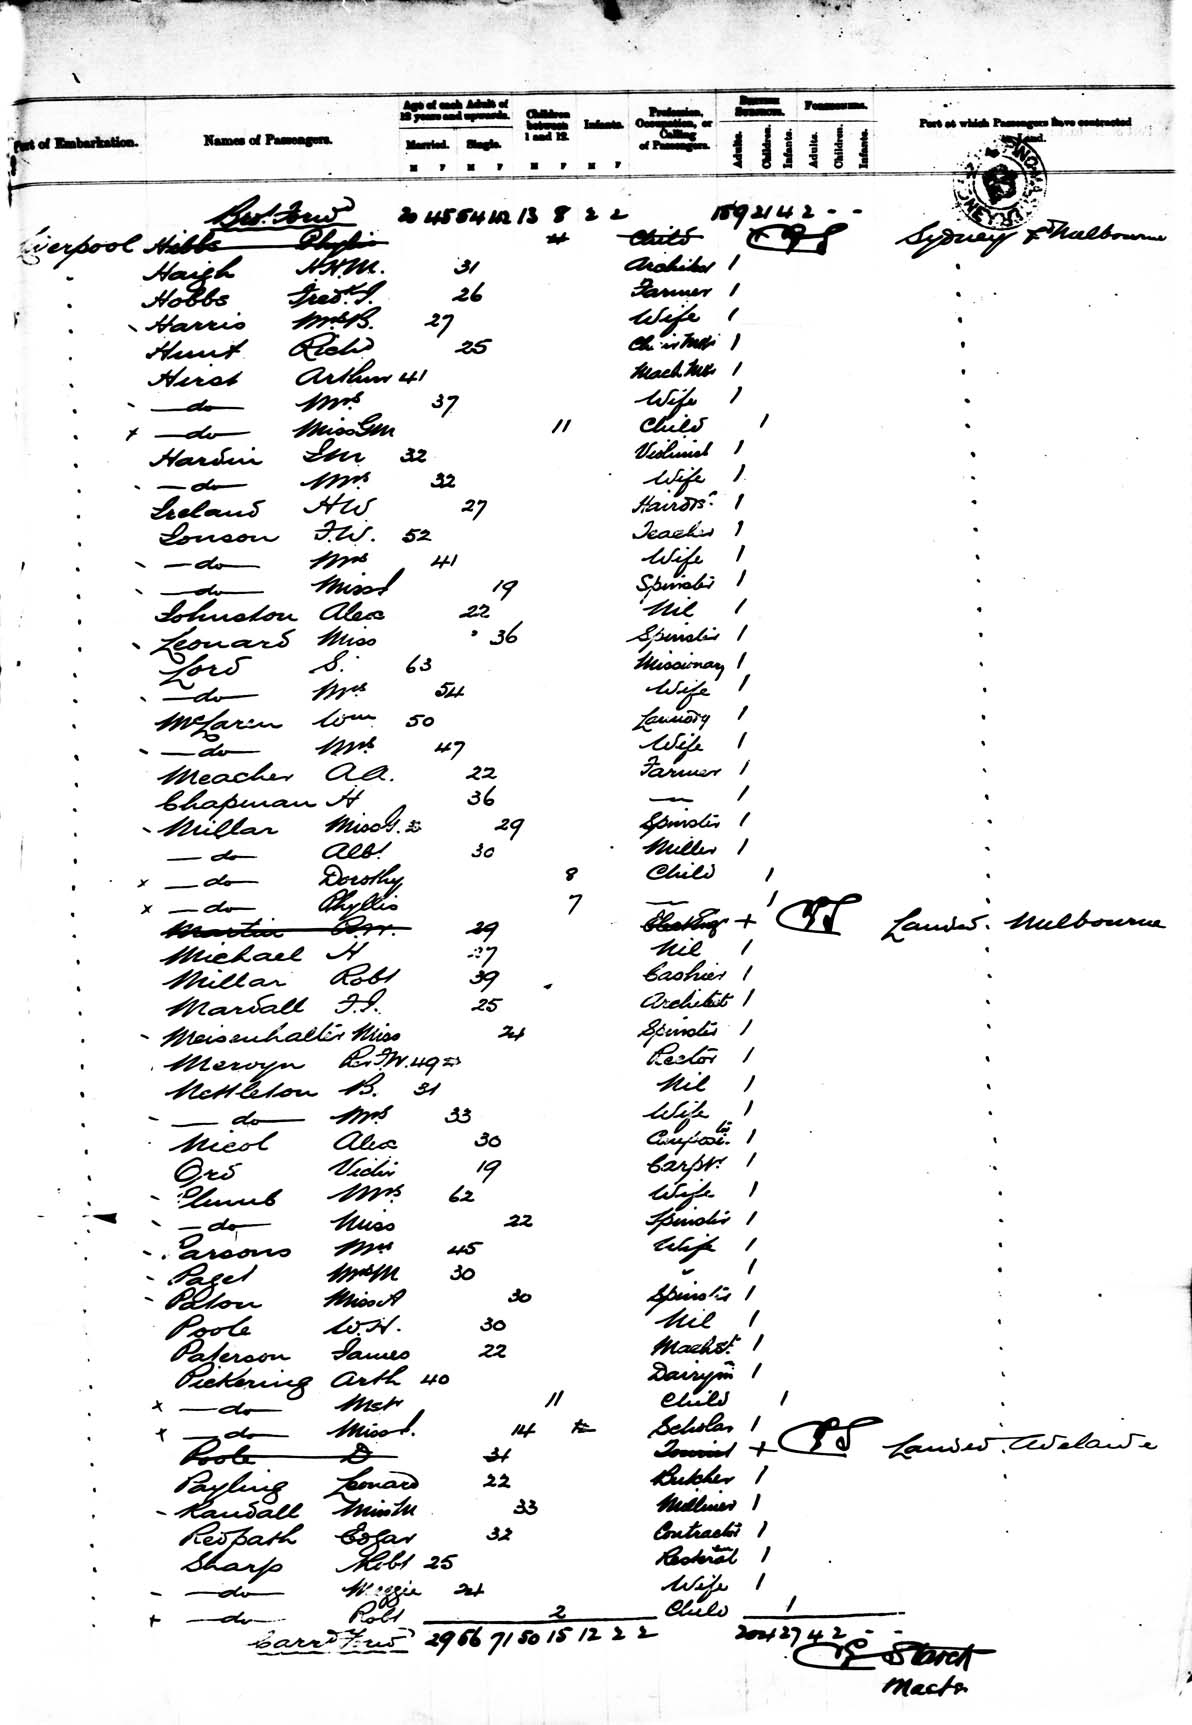 Port of Embarkation. Names of Passengers. Age of each Adult of 12 years and upwards. Married. Single. Children between 1 and 12. Infants. Profession, Occupation, or Calling of Passengers. British Subjects. Foreigners. Adults. Children. Infants. Adults. Children. Infants. Port at which Passengers have contracted
M F M F M F M F
Brot. Forwd 20 45 54 42 13 8 2 2 159 21 4 2 - -
Liverpool Hibbs Phyllis 4 Child Sydney Melbourne
Haigh H.H.M. 31 Architect 1
Hobbs Fredk. J. 26 Farmer 1
Harris Mrs B. 27 Wife 1
Hunt Richd 25 1
Hirst Arthur 41 Mach. Mkr 1
do Mrs 37 Wife 1
x do Miss GM 11 Child 1
Hardin 32 Violinist 1
do Mrs 32 Wife 1
Ireland HW 27 Hairdsr. 1
Jonson F.W. 52 Teacher 1
do Mrs 41 Wife 1
do Miss I 19 Spinster 1
Johnston Alex 22 Nil 1
Leonard Miss 36 Spinster 1
Lord S. 63 Missionary 1
do Mrs 54 Wife 1
McLaren Wm 50 Laundry 1
do Mrs 47 Wife 1
Meacher A.A. 22 Farmer 1
Chapman H 36 1
Millar Miss G. 29 Spinster 1
do Albt. 30 Miller 1
x do Dorothy 8 Child 1
x do Phyllis 7 1
Martin 29 + Landed. Melbourne
Michael H 37 Nil 1
Millar Robt 39 Cashier 1
Marsall F.J. 25 Architect 1
Meisenhalter Miss 24 Spinster 1
Mervyn Rev. F.W. 49 Rector 1
Nettleton B. 31 Nil 1
do Mrs 33 Wife 1
Nicol Alex 30 Compositor 1
Ord Victor 19 Carptr. 1
Plumb Mrs 62 Wife 1
do Miss 22 Spinster 1
Parsons Mrs 45 Wife 1
Paget Mrs M 30 " 1
Paton Miss A 30 Spinster 1
Poole W.H. 30 Nil 1
Paterson James 22 Machst. 1
Pickering Arth 40 Dairym 1
x do Mstr 11 Child 1
x do Miss I. 14 Scholar 1
Poole D 31 Tourist + Landed. Adelaide
Payling Leonard 22 Butcher 1
Randall Miss M 33 Milliner 1
Redpath Edgar 32 Contractor 1
Sharp Robt 25 1
do Maggie 24 Wife 1
+ do Robt 2 Child 1
Carrd. Forwd 29 56 71 50 15 12 2 2 204 27 4 2 - -
Master